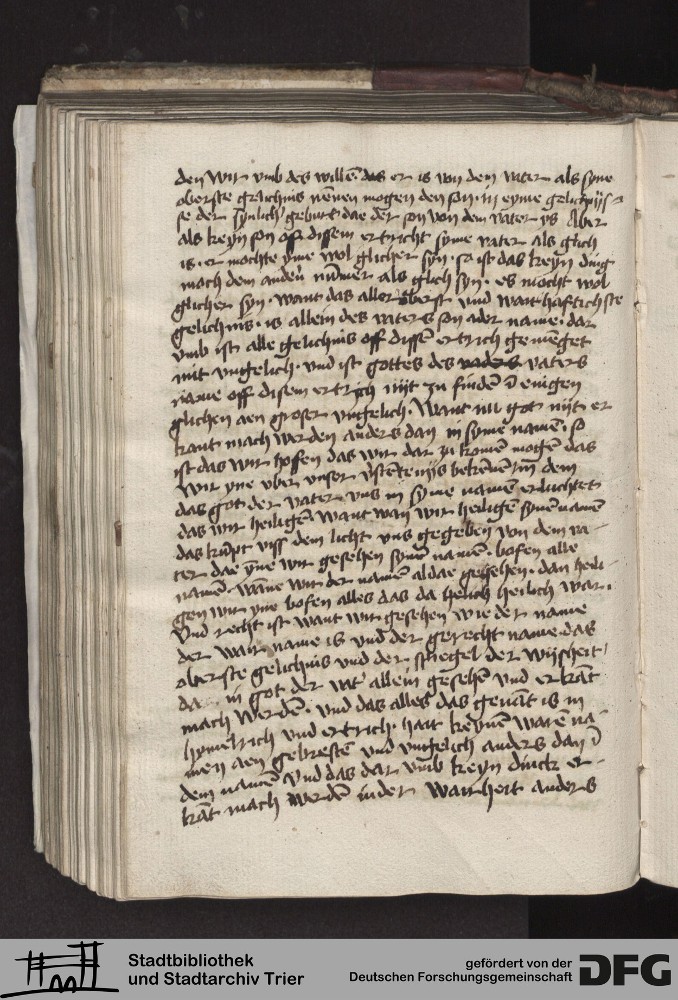 den wir vmb des willē das er is von dem vater als syne
oberste gelichnis nēnen mogen den son in eyme gelichnis
se der synlich geburt dae der son von dem vater ys Aber
als keyn son off dissem ertricht syme vater als glich
is er mochte yme wol glicher syn so ist das keyn ding
noch dem andern nūmer als glich syn es mocht wol
glicher syn want das aller oberst vnd warhafftichste
gelichnis is allein des vaters son ader name dar
vmb ist alle gelichnis off dissē ertrich gemēget
mit vngelich vnd ist gottes des vaters
name off disem ertrich nijt zu findē ī enigen
glichen aen groser vngelich Want nu got nijt er
kant mach werden anders dan in syme namē so
ist das wir hoffen das wir dar zu komē mogē das
wir yne vber vnser bekēnē in dem
das got der vater vns in syme namē erluchtet
das wir heiligē want wan wir heiligē synē namē
das kūpt viss dem licht vns gegebē von dem va-
ter dae yne wir gesehen synē namē bofen alle
namē wāne wir der namē aldae gesehen dan heili-
gen wir yne bofen alles das da helich heilich war
Vnd recht ist want wir gesehen wie der name
der war name is vnd der gerecht name das
oberste gelichnis vnd der spiegel der wijsheit
in got der vat allein gesehē vnd erkāt
mach werdē vnd das alles das genāt is in
hymelrich vnd ertrich hait keynē warē na
men aen gebrestē vnd vngelich anders dan ī
dem namē Vnd das dar vmb keyn dinck er-
kāt mach werdē in der warheit anders
Stadtbibliothek
und Stadtarchiv Trier
gefördert von der
Deutschen Forschungsgemeinschaft
DFG